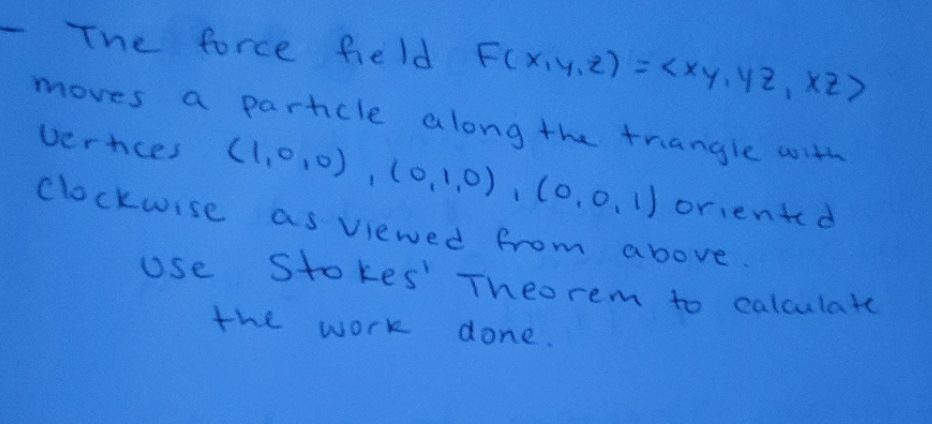 - The force field F(x,y,z) = <xy, yz, xz>
moves a particle along the triangle with
vertices (1,0,0), (0,1,0), (0,0,1) oriented
clockwise as viewed from above.
Use Stokes' Theorem to calculate
the work done.